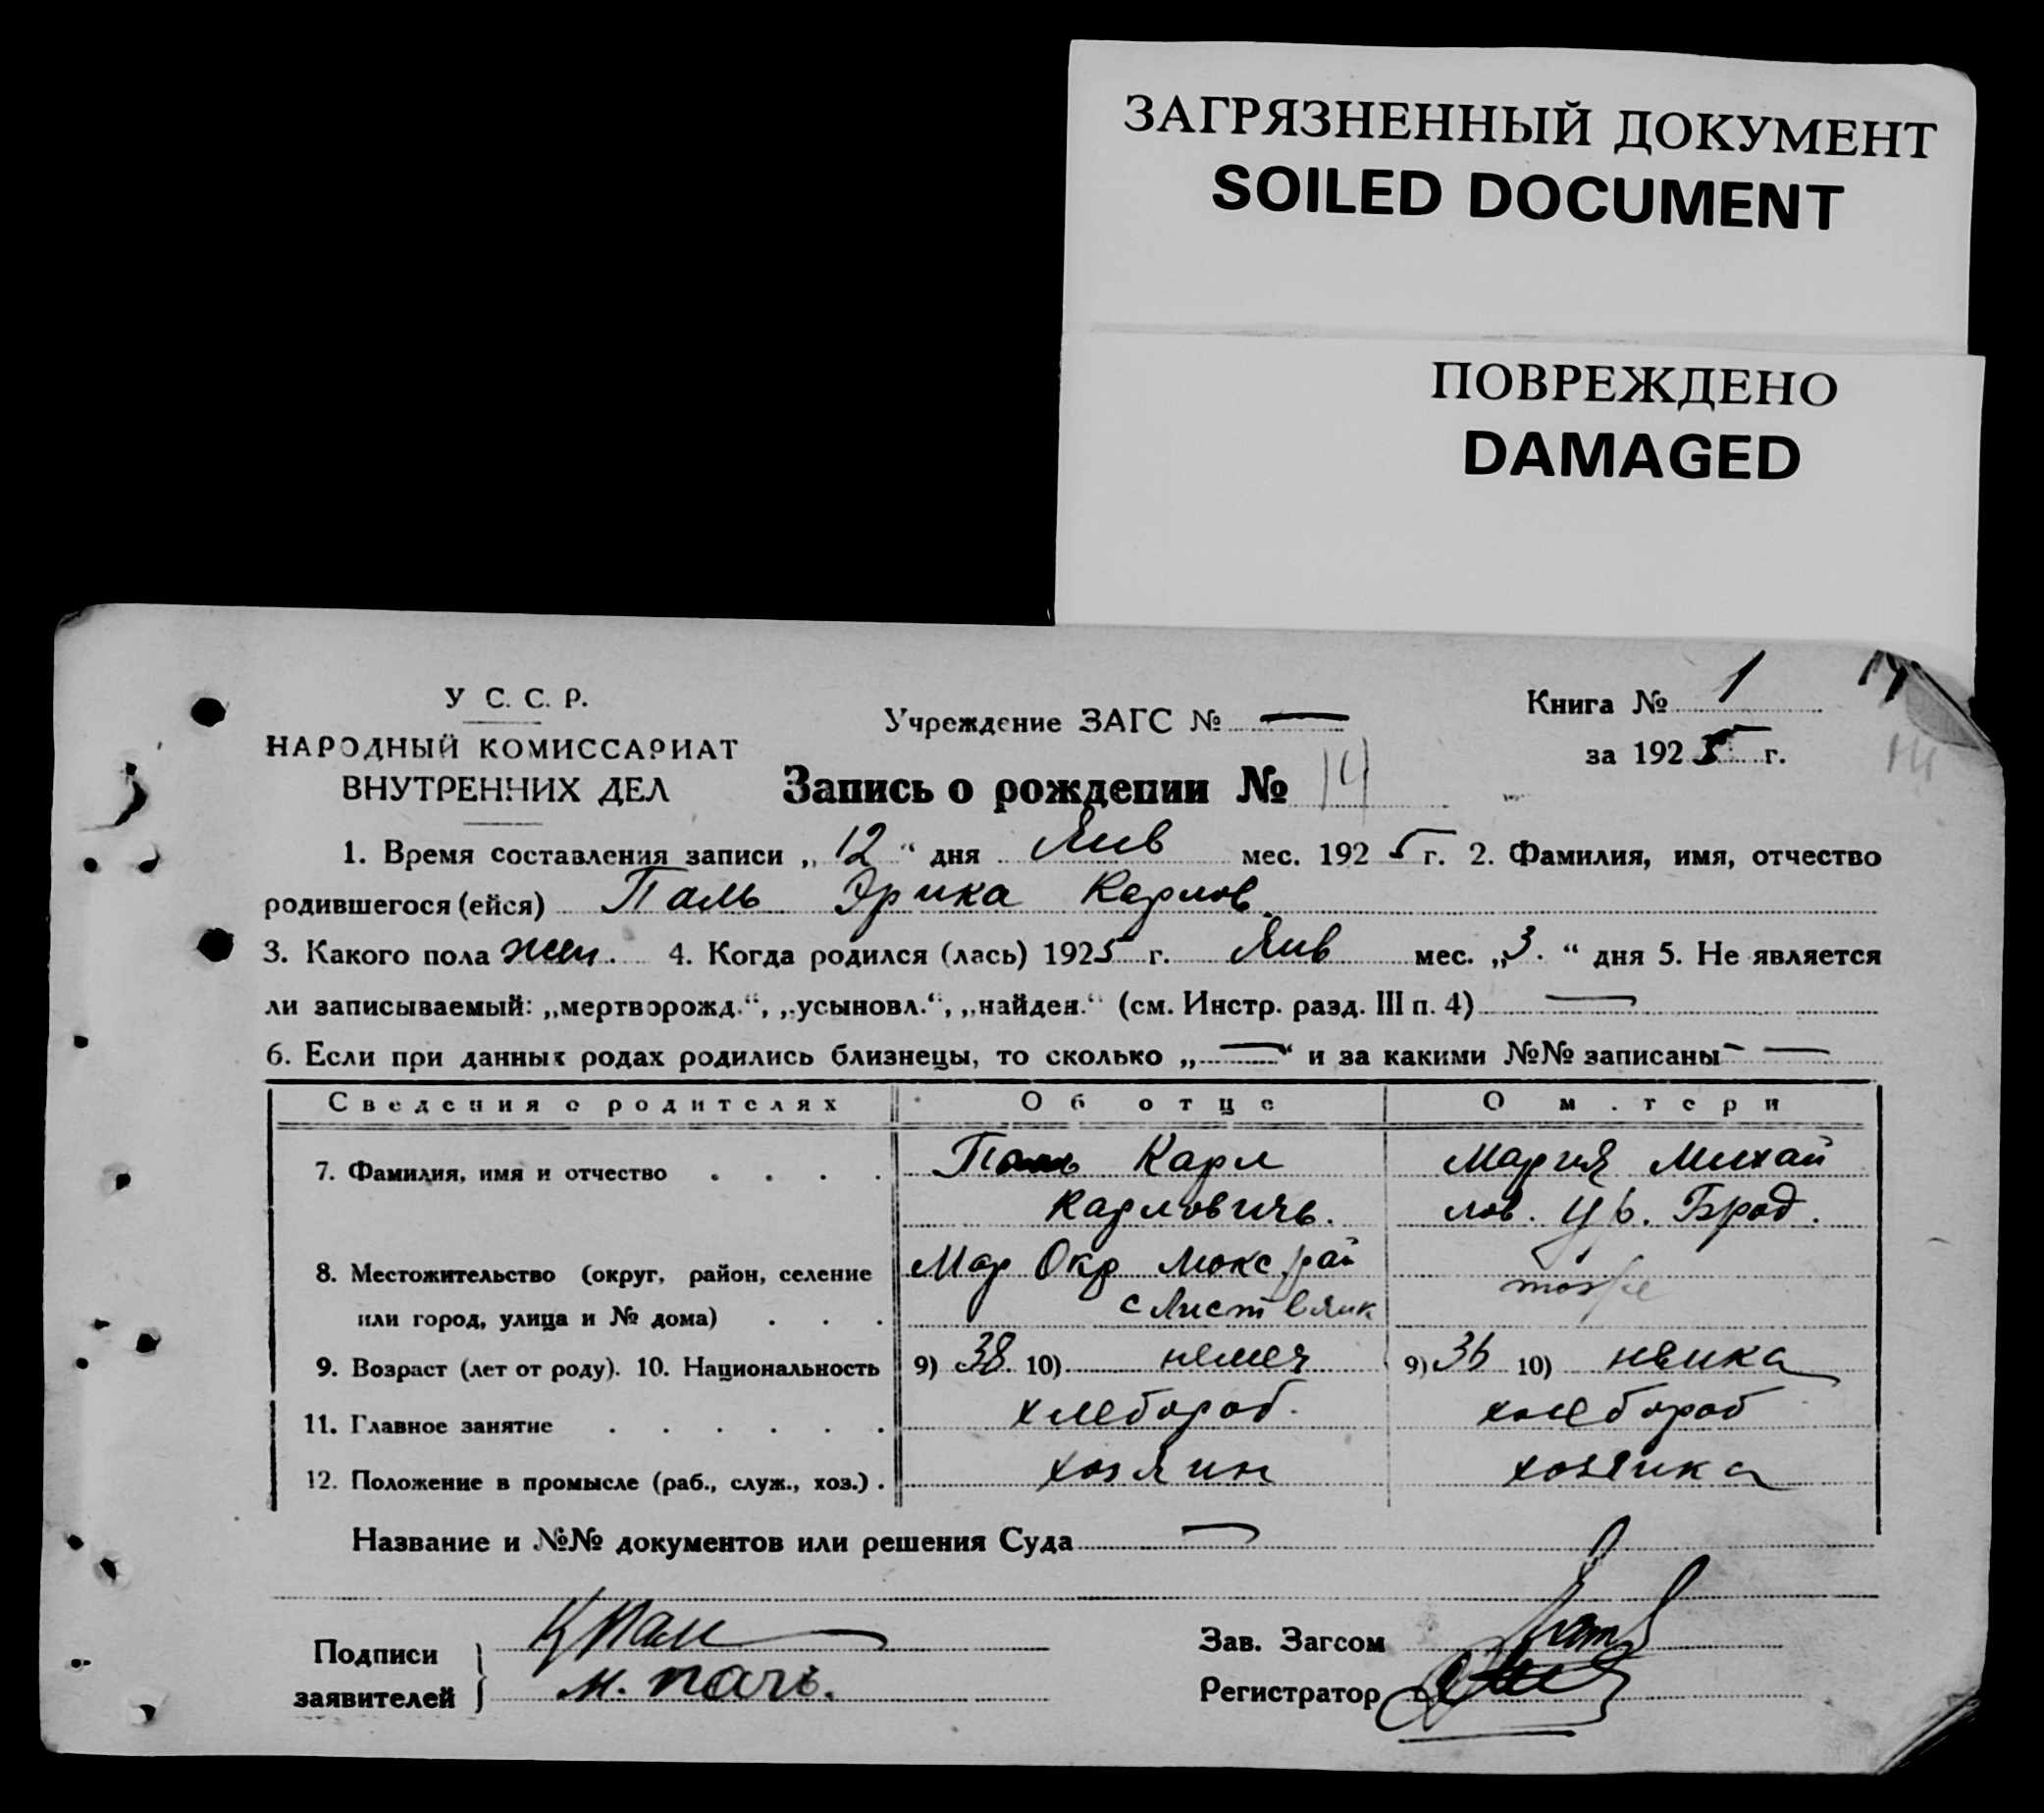 ЗАГРЯЗНЕННЫЙ ДОКУМЕНТ
SOILED DOCUMENT
ПОВРЕЖДЕНО
DAMAGED
14
У С. С. Р.
НАРОДНЫЙ КОМИССАРИАТ
ВНУТРЕННИХ ДЕЛ
Учреждение ЗАГС № —
Книга № 1
за 1925 г.
14
Запись о рождении № 14
1. Время составления записи „12“ дня Янв мес. 1925 г. 2. Фамилия, имя, отчество
родившегося (ейся) Паль Эрика Карлов.
3. Какого пола жен. 4. Когда родился (лась) 1925 г. Янв мес. „3.“ дня 5. Не является
ли записываемый: „мертворожд.“, „усыновл.“, „найден.“ (см. Инстр. разд. III п. 4) —
6. Если при данных родах родились близнецы, то сколько „—“ и за какими №№ записаны —
Сведения о родителях Об отце О м.тери
7. Фамилия, имя и отчество . . . . Паль Карл Мария Михай
Карловичь. лов. Ур. Брод.
8. Местожительство (округ, район, селение Мар Окр Люкс рай тоже
или город, улица и № дома) . . . с Листвянк
9. Возраст (лет от роду). 10. Национальность 9) 38 10) немец 9) 36 10) немка
11. Главное занятие . . . . . . хлебороб. хлебороб
12. Положение в промысле (раб., служ., хоз.) . хозяин хозяйка
Название и №№ документов или решения Суда —
Подписи
заявителей
К Паль
М. Паль.
Зав. Загсом
Регистратор